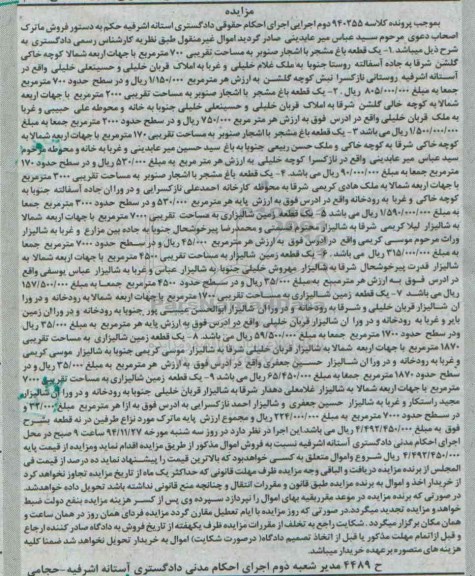 مزایده
بموجب پرونده کلاسه ۹۴۰۲۵۵ دوم اجرایی اجرای احکام حقوقی دادگستری آستانه اشرفیه حکم به دستور فروش ماترک
اصحاب دعوی مرحوم سید عباس میر عابدینی صادر گردید اموال غیرمنقول طبق نظریه کارشناس رسمی دادگستری به
شرح ذیل میباشد. ۱- یک قطعه باغ مشجر با اشجار صنوبر به مساحت تقریبی ۷۰۰ مترمربع با جهات اربعه شمالا کوچه خاکی
گلشن شرقا به جاده آسفالته روستا جنوبا به ملک غلام خلیلی و غربا به املاک قربان خلیلی و حسینعلی خلیلی واقع در
آستانه اشرفیه روستای نازکسرا نبش کوچه گلشن به ارزش هر مترمربع ۱/۱۵۰/۰۰۰ ریال و در سطح حدود ۷۰۰ مترمربع
جمعا به مبلغ ۸۰۵/۰۰۰/۰۰۰ ریال ۲- یک قطعه باغ مشجر با اشجار صنوبر به مساحت تقریبی ۲۰۰۰ مترمربع با جهات اربعه
شمالا به کوچه خاکی گلشن شرقا به املاک قربان خلیلی و حسینعلی خلیلی جنوبا به خانه و محوطه علی حبیبی و غربا
به ملک قربان خلیلی واقع در ادرس فوق به ارزش هر متر مربع ۷۵۰/۰۰۰ ریال و در سطح حدود ۲۰۰۰ مترمربع جمعا به مبلغ
۱/۵۰۰/۰۰۰/۰۰۰ ریال می باشد ۳- یک قطعه باغ مشجر با اشجار صنوبر به مساحت تقریبی ۱۷۰ مترمربع با جهات اربعه شمالا به
کوچه خاکی شرقا به کوچه خاکی و ملک حسن ربیعی جنوبا به باغ سید حسین میر عابدینی و غربا به خانه و محوطه مرحوم
سید عباس میر عابدینی واقع در نازکسرا کوچه خلیلی به ارزش هر متر مربع به مبلغ ۵۳۰/۰۰۰ ریال و در سطح حدود ۱۷۰
مترمربع جمعا به مبلغ ۹۰/۰۰۰/۰۰۰ ریال می باشد. ۴- یک قطعه باغ مشجر با اشجار صنوبر به مساحت تقریبی ۳۰۰۰ مترمربع
با جهات اربعه شمالا به ملک هادی کریمی شرقا به محوطه کارخانه احمدعلی نازکسرایی و در وران جاده آسفالته جنوبا به
کوچه خاکی و غربا به رودخانه واقع در ادرس فوق به ارزش پایه هر مترمربع ۵۳۰/۰۰۰ و در سطح حدود ۳۰۰۰ مترمربع جمعا
به مبلغ ۱/۵۹۰/۰۰۰/۰۰۰ ریال می باشد ۵- یک قطعه زمین شالیزاری به مساحت تقریبی ۷۰۰۰ مترمربع با جهات اربعه شمالا
به شالیزار لیلا کریمی شرقا به شالیزار و محمدرضا پیرخوشحال جنوبا به جاده بین مزارع و غربا به شالیزار
وراث مرحوم موسی کریمی واقع در ادرس فوق به ارزش هر مترمربع ۴۵/۰۰۰ ریال و در سطح حدود ۷۰۰۰ مترمربع جمعا
به مبلغ ۳۱۵/۰۰۰/۰۰۰ ریال می باشد. ۶- یک قطعه زمین شالیزار به مساحت تقریبی ۴۵۰۰ مترمربع با جهات اربعه شمالا به
شالیزار قدرت پیرخوشحال شرقا به شالیزار مهروش خلیلی جنوبا به شالیزار عباس و غربا به شالیزار عباس یوسفی واقع
در ادرس فوق به ارزش هر مترمربع به مبلغ ۳۵/۰۰۰ ریال و در سطح حدود ۴۵۰۰ مترمربع جمعا به مبلغ ۱۵۷/۵۰۰/۰۰۰
ریال می باشد ۷- یک قطعه زمین شالیزاری به مساحت تقریبی ۱۷۰۰ مترمربع با جهات اربعه شمالا به رودخانه و در ورا
ان شالیزار قربان خلیلی و شرقا به رودخانه و در وران شالیزار ابوالحسن پور جنوبا به رودخانه و در وران زمین
بایر و غربا به رودخانه و در ورا ان شالیزار قربان خلیلی واقع در ادرس فوق به ارزش پایه هر مترمربع به مبلغ ۳۵/۰۰۰ ریال
ودر سطح حدود ۱۷۰۰ مترمربع جمعا به مبلغ ۵۹/۵۰۰/۰۰۰ ریال می باشد ۸- یک قطعه زمین شالیزاری به مساحت تقریبی
۱۸۷۰ مترمربع با جهات اربعه شمالا به شالیزار قربان خلیلی شرقا به شالیزار موسی کریمی جنوبا به شالیزار موسی کریمی
و غربا به رودخانه و در وران شالیزار حسین جعفری واقع در ادرس فوق به ارزش هر مترمربع به مبلغ ۳۵/۰۰۰ ریال و در
سطح حدود ۱۸۷۰ مترمربع جمعا به مبلغ ۶۵/۴۵۰/۰۰۰ ریال می باشد ۹- یک قطعه زمین شالیزاری به مساحت تقریبی ۷۰۰۰
مترمربع با جهات اربعه شمالا به شالیزار غلامعلی دهدار شرقا به شالیزار قربان خلیلی جنوبا به رودخانه و در ورا ان شالیزار
مجید راستکار و غربا به شالیزار حسین جعفری و شالیزار احمد نازکسرایی به ادرس فوق به ازا هر مترمربع مبلغ ۳۲/۰۰۰ و
در سطح حدود ۷۰۰۰ مترمربع به مبلغ ۲۲۴/۰۰۰/۰۰۰ ریال و مجموع ارزش پایه ماترک مورد نزاع طرفین در نه قطعه بشرح
فوق به مبلغ ۴/۴۹۲/۴۵۰/۰۰۰ ریال می باشد. این اجرا در نظر دارد در روز سه شنبه مورخه ۹۴/۱۱/۲۷ ساعت ۹ صبح در محل
اجرای احکام مدنی دادگستری آستانه اشرفیه نسبت به فروش اموال مذکور از طریق مزایده اقدام نماید ومزایده از قیمت پایه
۴/۴۹۲/۴۵۰/۰۰۰ ریال شروع واموال متعلق به کسی خواهدبود که بالاترین قیمت را پیشنهاد نماید ده درصد از قیمت فی
المجلس از برنده مزایده دریافت و الباقی وجه مزایده ظرف مهلت قانونی که حداکثر یک ماه از تاریخ مزایده تجاوز نخواهد کرد
از خریدار اخذ و اموال به برنده مزایده طبق قانون و مقررات انتقال و چنانچه منع قانونی نداشته باشد تحویل داده خواهدشد.
در صورتی که برنده مزایده در موعد مقرربقیه بهای اموال را نپردازد سپرده وی پس از کسر هزینه مزایده بنفع دولت ضبط
خواهد و مزایده تجدید میگردد. در صورتی که روز مزایده با ایام تعطیل مقارن گردد مزایده فردای همان روز در همان ساعت و
همان مکان برگزار میگردد. شکایت راجع به تخلف از مقررات مزایده ظرف یکهفته از تاریخ فروش به دادگاه صادر کننده ارجاع
و قبل از اتمام مهلت مذکور یا قبل از اتخاذ تصمیم دادگاه( درصورت شکایت) اموال به خریدار تحویل نخواهد شد ضمنا کلیه
هزینه های متصوره برعهده خریدار میباشد.
ح ۴۴۸۹ مدیر شعبه دوم اجرای احکام مدنی دادگستری آستانه اشرفیه-حجامی